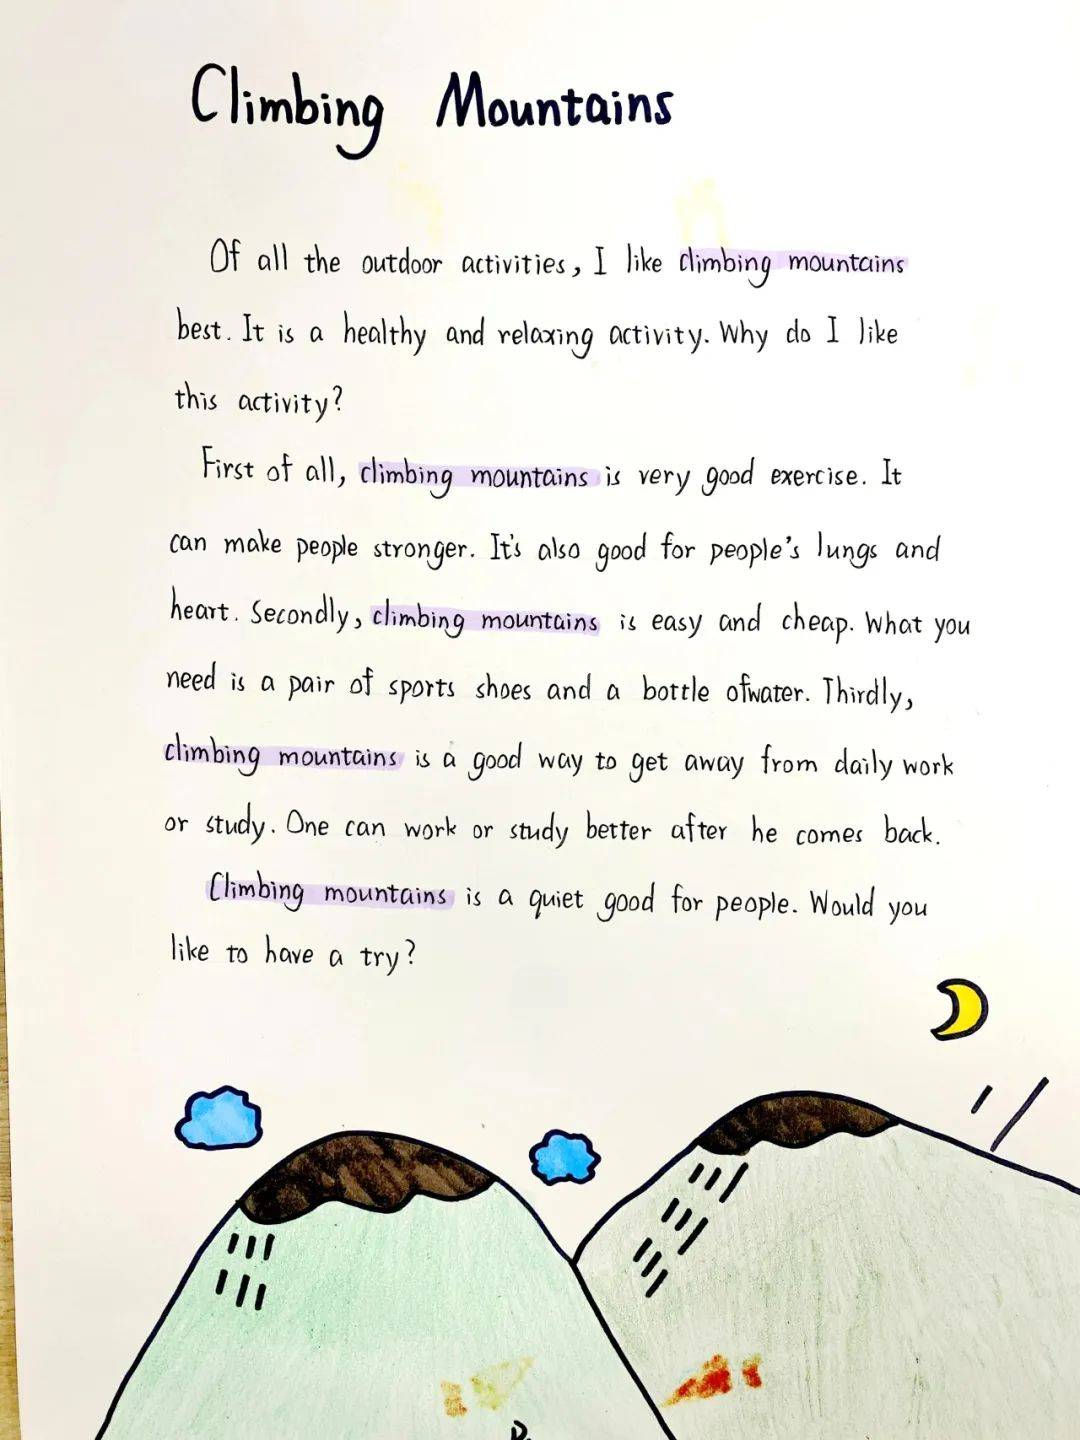 Climbing Mountains
Of all the outdoor activities, I like climbing mountains
best. It is a healthy and relaxing activity. Why do I like
this activity?
First of all, climbing mountains is very good exercise. It
can make people stronger. It's also good for people's lungs and
heart. Secondly, climbing mountains is easy and cheap. What you
need is a pair of sports shoes and a bottle ofwater. Thirdly,
climbing mountains is a good way to get away from daily work
or study. One can work or study better after he comes back.
Climbing mountains is a quiet good for people. Would you
like to have a try?